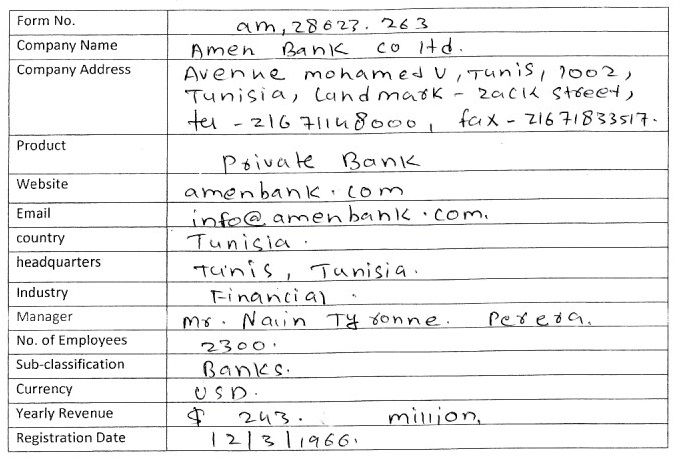 Form No. am, 28623. 263
Company Name Amen Bank co ltd.
Company Address Avenue mohamed V, Tunis, 1002,
Tunisia, Landmark - zack street,
tel - 216 71148000, fax - 21671833517.
Product Private Bank
Website amenbank.com
Email info@amenbank.com.
country Tunisia.
headquarters tunis, Tunisia.
Industry Financial.
Manager Mr. Nain Tyronne. Perera.
No. of Employees 2300.
Sub-classification Banks.
Currency USD.
Yearly Revenue $ 243. million,
Registration Date 12/3/1966.